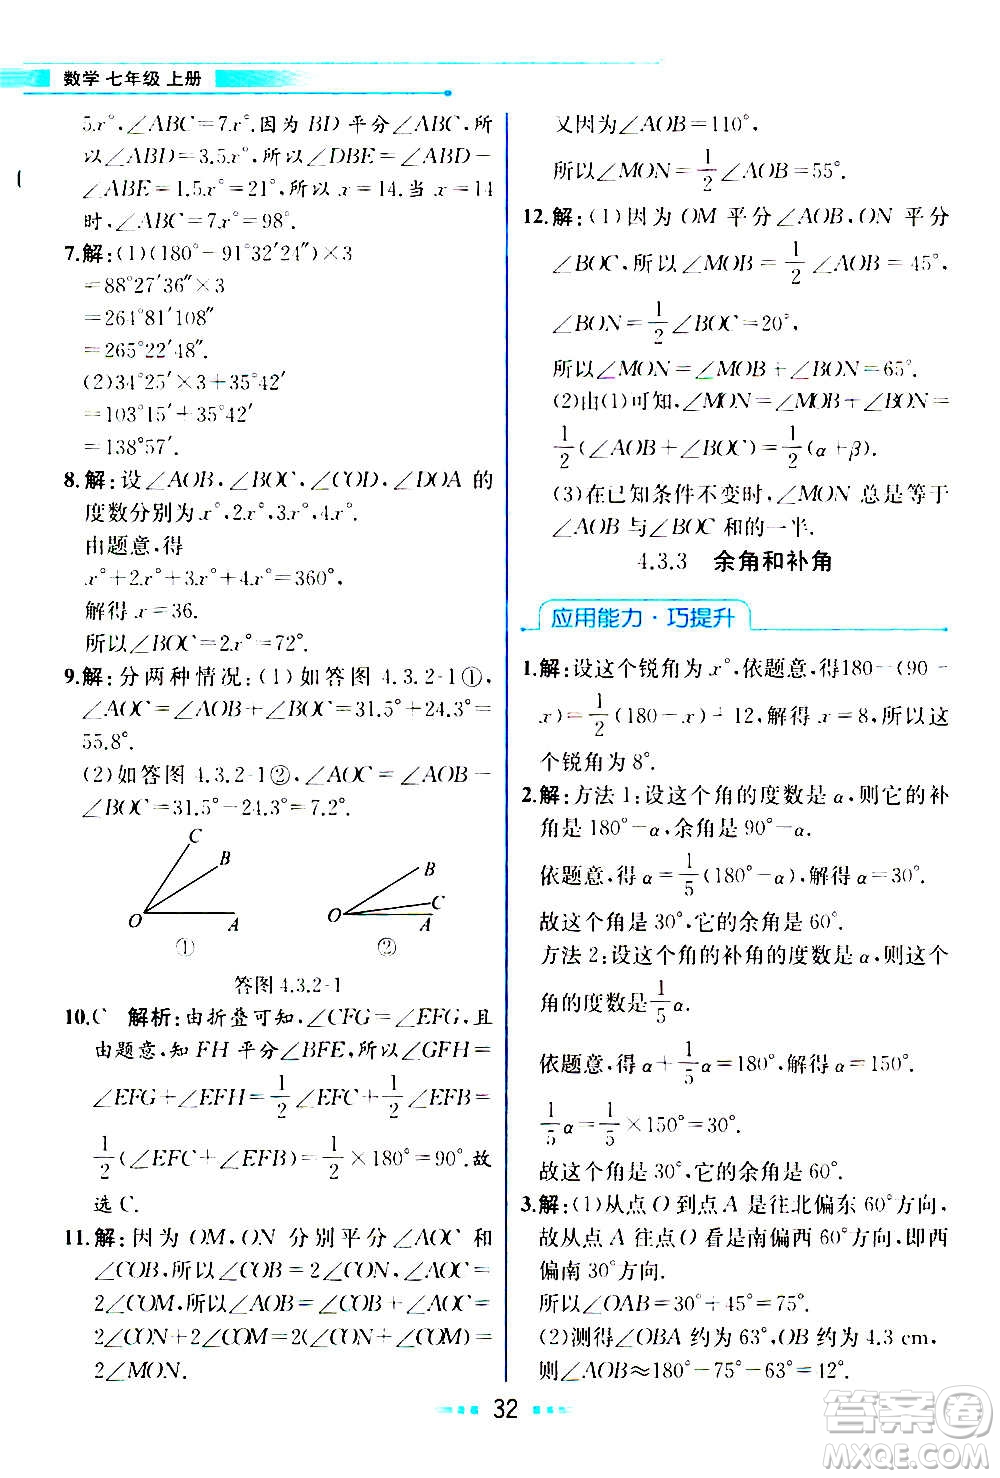 数学 七年级 上册
5x°,∠ABC=7x°.因为 BD 平分∠ABC,所
以∠ABD=3.5x°,所以∠DBE=∠ABD-
∠ABE=1.5x°=21°,所以 x=14.当 x=14
时,∠ABC=7x°=98°.
7.解:(1)(180°-91°32′24″)×3
=88°27′36″×3
=264°81′108″
=265°22′48″.
(2)34°25′×3+35°42′
=103°15′+35°42′
=138°57′.
8.解:设∠AOB,∠BOC,∠COD,∠DOA 的
度数分别为 x°,2x°,3x°,4x°.
由题意,得
x°+2x°+3x°+4x°=360°,
解得 x=36.
所以∠BOC=2x°=72°.
9.解:分两种情况:(1)如答图 4.3.2-1①,
∠AOC=∠AOB+∠BOC=31.5°+24.3°=
55.8°.
(2)如答图 4.3.2-1②,∠AOC=∠AOB-
∠BOC=31.5°-24.3°=7.2°.
C B O A
①
B C O A
②
答图 4.3.2-1
10.C 解析:由折叠可知,∠CFG=∠EFG,且
由题意,知 FH 平分∠BFE,所以∠GFH=
∠EFG+∠EFH=1/2∠EFC+∠EFB=
1/2(∠EFC+∠EFB)=1/2×180°=90°.故
选 C.
11.解:因为 OM,ON 分别平分∠AOC 和
∠COB,所以∠COB=2∠CON,∠AOC=
2∠COM,所以∠AOB=∠COB+∠AOC=
2∠CON+2∠COM=2(∠CON+∠COM)=
2∠MON.
又因为∠AOB=110°,
所以∠MON=1/2∠AOB=55°.
12.解:(1)因为 OM 平分∠AOB,ON 平分
∠BOC,所以∠MOB=1/2∠AOB=45°,
∠BON=1/2∠BOC=20°,
所以∠MON=∠MOB+∠BON=65°.
(2)由(1)可知,∠MON=∠MOB+∠BON=
1/2(∠AOB+∠BOC)=1/2(α+β).
(3)在已知条件不变时,∠MON 总是等于
∠AOB 与∠BOC 和的一半.
4.3.3 余角和补角
应用能力·巧提升
1.解:设这个锐角为 x°,依题意,得180-(90-
x)=1/2(180-x)+12,解得 x=8,所以这
个锐角为 8°.
2.解:方法 1:设这个角的度数是 α,则它的补
角是 180°-α,余角是 90°-α.
依题意,得 α=1/5(180°-α),解得 α=30°.
故这个角是 30°,它的余角是 60°.
方法 2:设这个角的补角的度数是 α,则这个
角的度数是1/5α.
依题意,得 α+1/5α=180°,解得 α=150°.
1/5α=1/5×150°=30°.
故这个角是 30°,它的余角是 60°.
3.解:(1)从点 O 到点 A 是往北偏东 60°方向,
故从点 A 往点 O 看是南偏西 60°方向,即西
偏南 30°方向.
所以∠OAB=30°+45°=75°.
(2)测得∠OBA 约为 63°,OB 约为 4.3 cm,
则∠AOB≈180°-75°-63°=42°.
32
答案圈
MXQE.COM